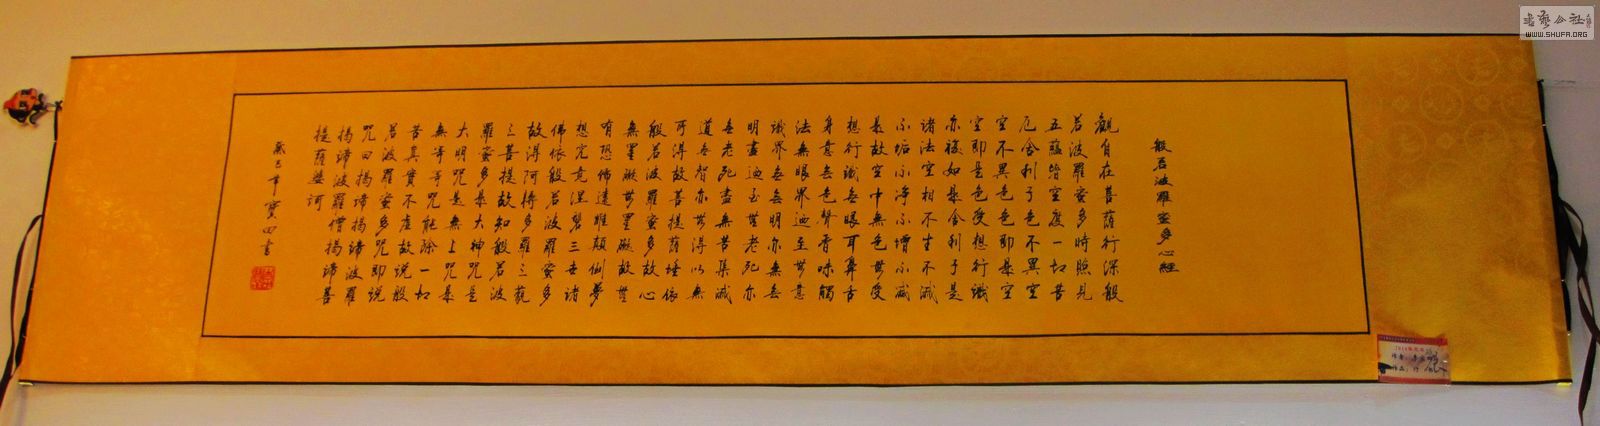 般若波羅蜜多心經
觀自在菩薩行深般
若波羅蜜多時照見
五蘊皆空度一切苦
厄舍利子色不異空
空不異色色即是空
空即是色受想行識
亦復如是舍利子是
諸法空相不生不滅
不垢不淨不增不減
是故空中無色無受
想行識无眼耳鼻舌
身意无色聲香味觸
法無眼界迺至無意
識界无無明亦無无
明盡迺至無老死亦
无老死盡無苦集滅
道无智亦無得以無
所得故菩提薩埵依
般若波羅蜜多故心
無罣礙無罣礙故無
有恐怖遠離顛倒夢
想究竟涅槃三世諸
佛依般若波羅蜜多
故得阿耨多羅三藐
三菩提故知般若波
羅蜜多是大神咒是
大明咒是無上咒是
無等等咒能除一切
苦真實不虛故說般
若波羅蜜多咒即說
咒曰揭諦揭諦波羅
揭諦波羅僧揭諦菩
提薩婆訶
癸巳年寶田書
書藝公社
WWW.SHUFA.ORG